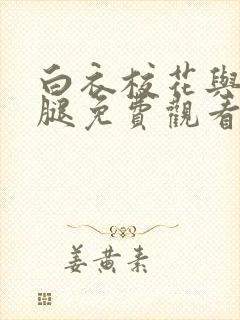 白衣校花與
腿免費觀看
姜黄素